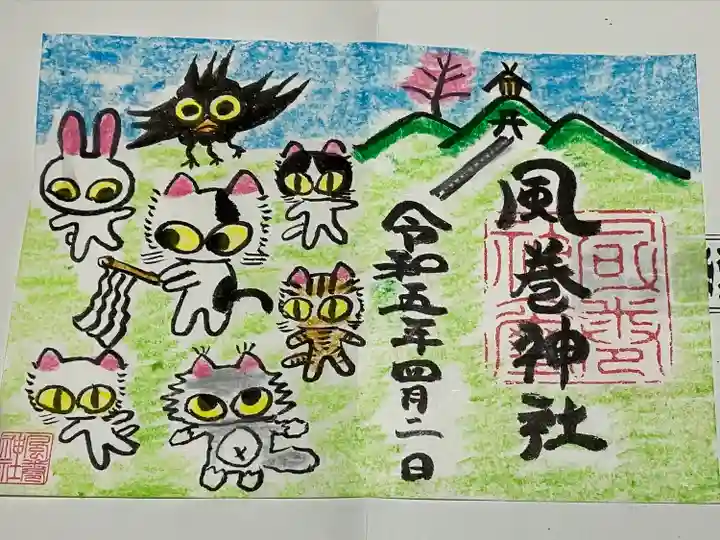 風巻神社
令和五年四月二日
風巻
神社